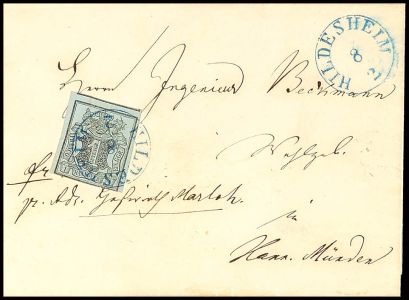 HILDESHEIM
8 2
Herrn Ingenieur Beckmann
Wohlgeb.
fr
pr. Adr. Gastwirth Marloh.
in
Hann. Münden